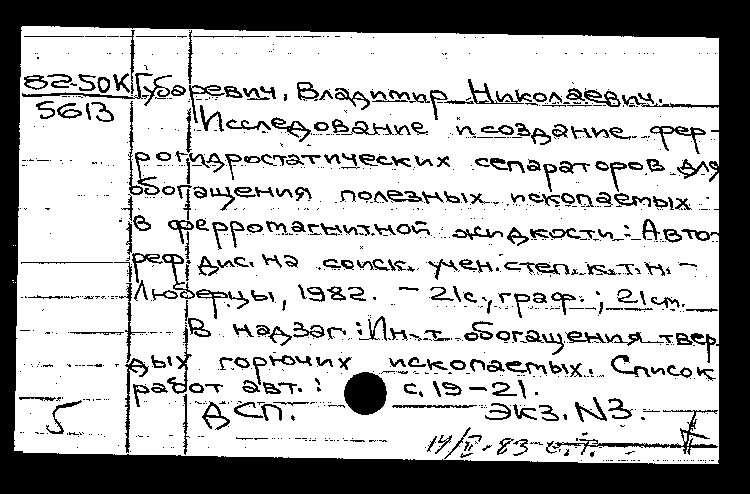 82-50К Губаревич, Владимир Николаевич.
5613 Исследование и создание фер-
рогидростатических сепараторов для
обогащения полезных ископаемых
в ферромагнитной жидкости: Авто-
реф. дис. на соиск. учен. степ. к.т.н. -
Люберцы, 1982. - 21с., граф.; 21см.
В надзаг.: Ин-т обогащения твер
дых горючих ископаемых. Список
работ авт.: с. 19-21.
5 ДСП. ЭКЗ. N3.
14/II-83